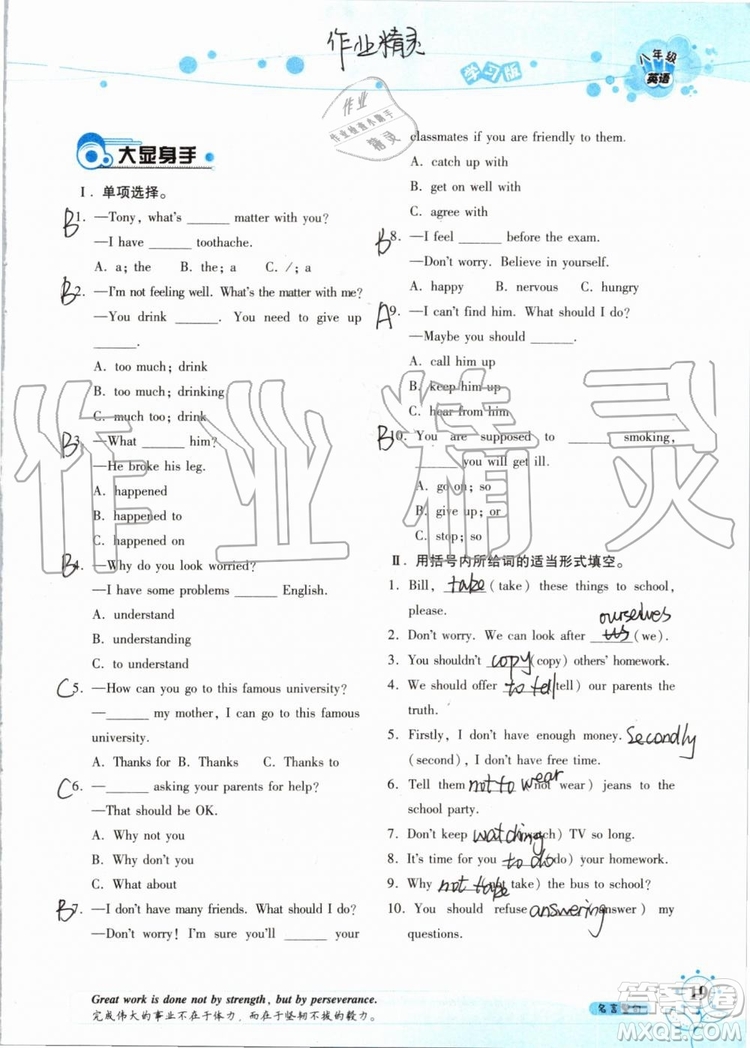 作业精灵
学习版
八年级
英语
作业
作业检查小助手
精灵
大显身手
Ⅰ. 单项选择。
B 1. —Tony, what's ______ matter with you?
—I have ______ toothache.
A. a; the B. the; a C. /; a
B 2. —I'm not feeling well. What's the matter with me?
—You drink ______. You need to give up
______.
A. too much; drink
B. too much; drinking
C. much too; drinking
B 3. —What ______ him?
—He broke his leg.
A. happened
B. happened to
C. happened on
B 4. —Why do you look worried?
—I have some problems ______ English.
A. understand
B. understanding
C. to understand
C 5. —How can you go to this famous university?
—______ my mother, I can go to this famous
university.
A. Thanks for B. Thanks C. Thanks to
C 6. —______ asking your parents for help?
—That should be OK.
A. Why not you
B. Why don't you
C. What about
B 7. —I don't have many friends. What should I do?
—Don't worry! I'm sure you'll ______ your
classmates if you are friendly to them.
A. catch up with
B. get on well with
C. agree with
B 8. —I feel ______ before the exam.
—Don't worry. Believe in yourself.
A. happy B. nervous C. hungry
A 9. —I can't find him. What should I do?
—Maybe you should ______.
A. call him up
B. keep him up
C. hear from him
B 10. You are supposed to ______ smoking,
______ you will get ill.
A. go on; so
B. give up; or
C. stop; so
Ⅱ. 用括号内所给词的适当形式填空。
1. Bill, take (take) these things to school,
please.
ourselves
2. Don't worry. We can look after us (we).
3. You shouldn't copy (copy) others' homework.
4. We should offer to tell (tell) our parents the
truth.
5. Firstly, I don't have enough money. Secondly
(second), I don't have free time.
6. Tell them not to wear (not wear) jeans to the
school party.
7. Don't keep watching (watch) TV so long.
8. It's time for you to do (do) your homework.
9. Why not take (take) the bus to school?
10. You should refuse answering (answer) my
questions.
Great work is done not by strength, but by perseverance.
完成伟大的事业不在于体力，而在于坚韧不拔的毅力。
名言警句
19
作业精灵
答案圈
MXQE.COM